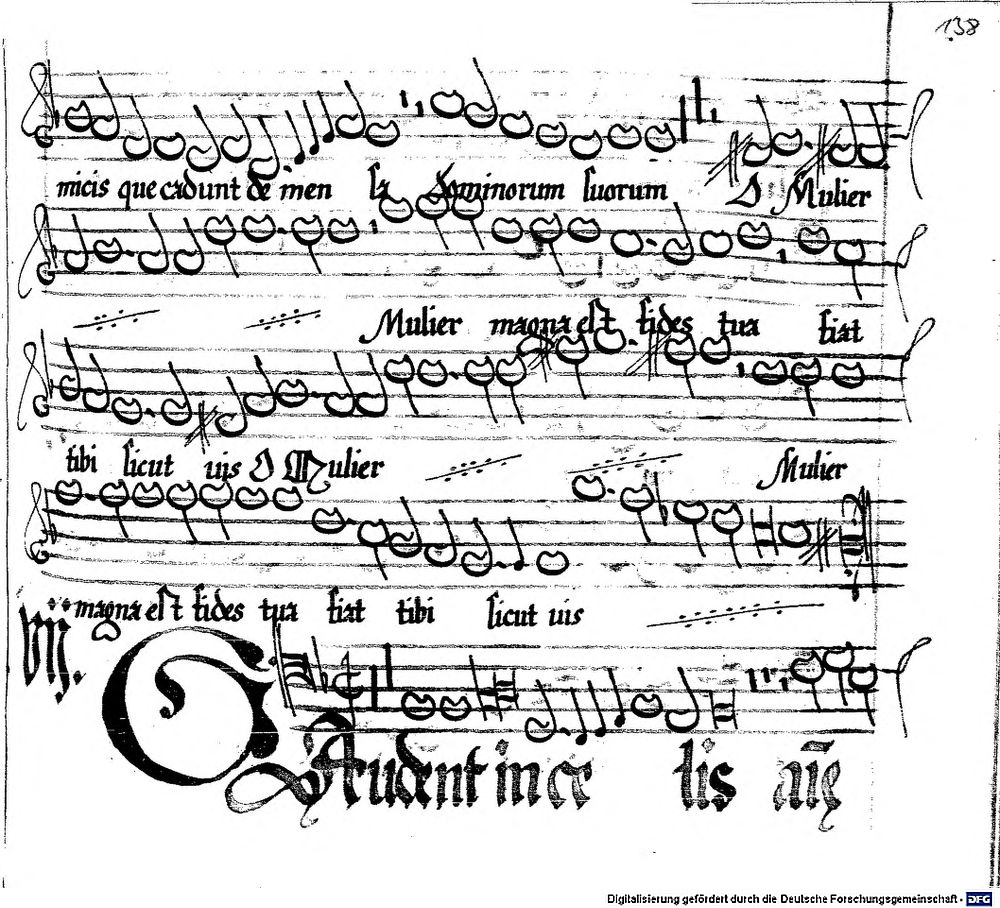 138
micis que cadunt de men sa dominorum suorum O Mulier
Mulier magna est fides tua fiat
tibi sicut uis O Mulier Mulier
magna est fides tua fiat tibi sicut uis
Viij.
Gaudent in ce lis
Digitalisierung gefördert durch die Deutsche Forschungsgemeinschaft - DFG